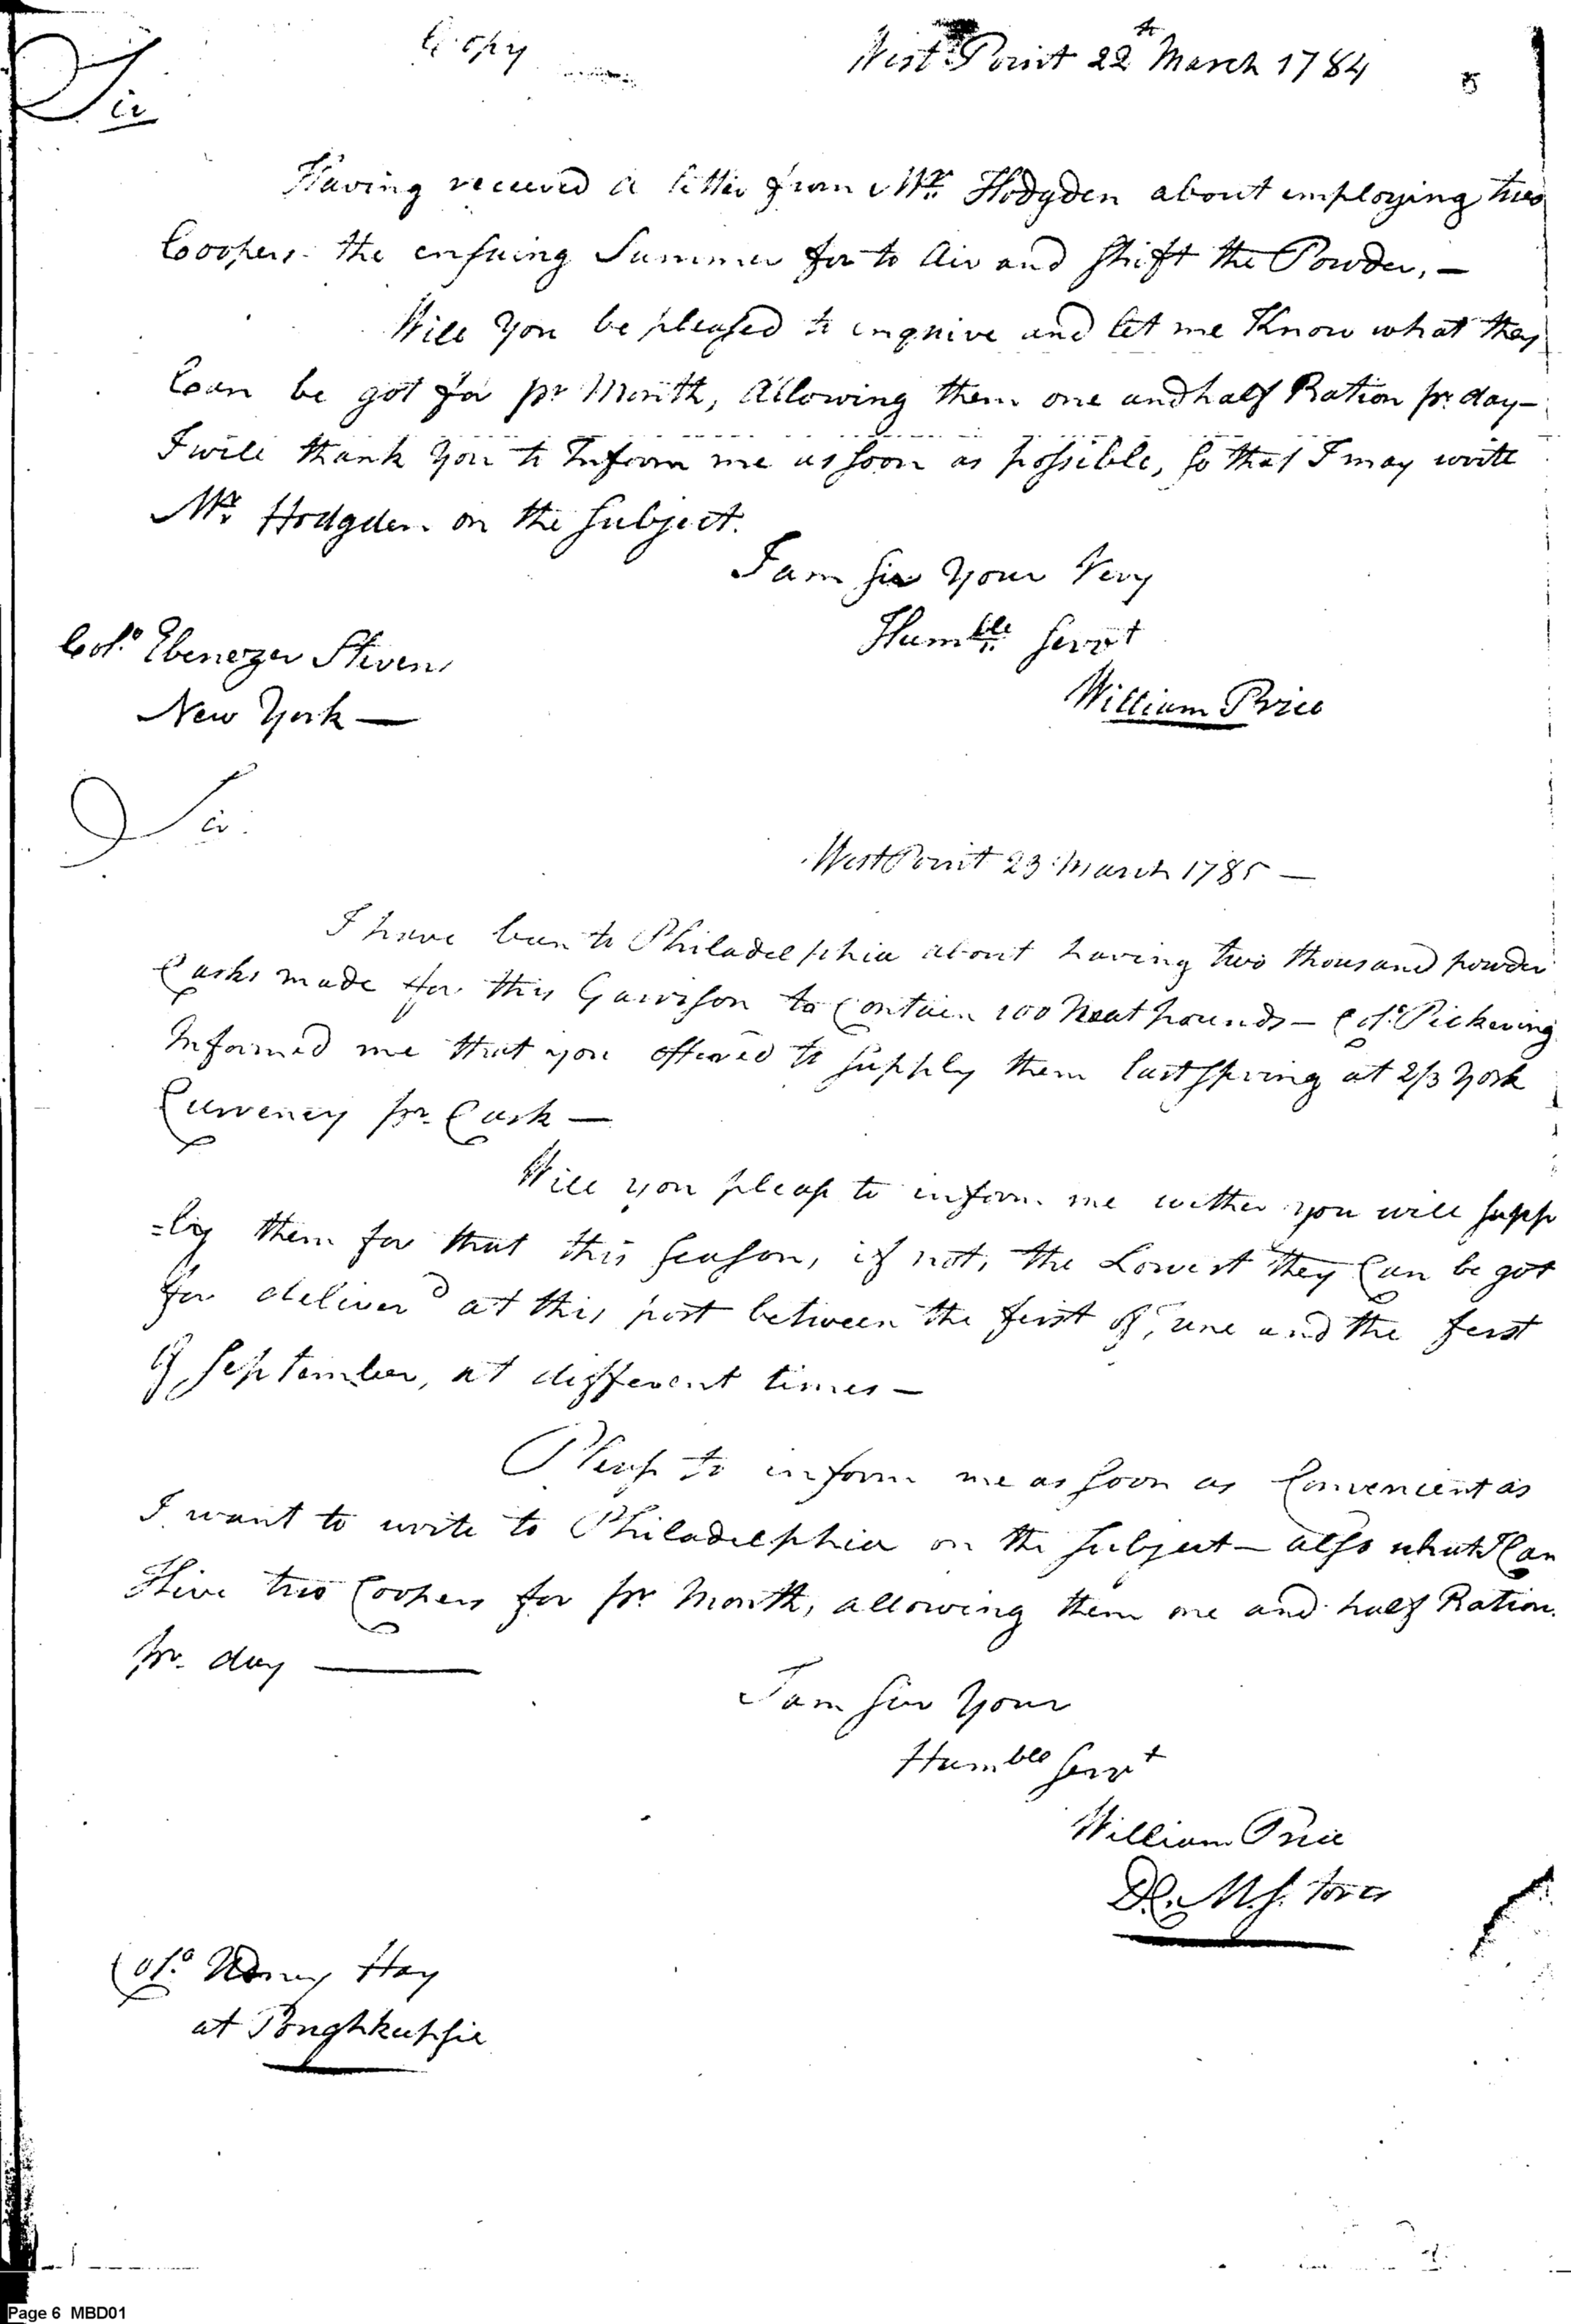 Copy
West Point 22th March 1784
Sir
Having received a letter from Mr. Hodgden about employing two
Coopers the ensuing Summer for to Air and shift the Powder, —
Will you be pleased to enquire and let me Know what they
Can be got for pr Month, Allowing them one and half Ration pr. day —
I will thank you to Inform me as soon as possible, so that I may write
Mr. Hodgden on the subject.
I am sir your Very
Humble servt
Colo. Ebenezer Stevens
New York —
William Price
Sir.
West Point 23 March 1785 —
I have been to Philadelphia about having two thousand powder
Casks made for this Garrison to Contain 100 Neat pounds — Colo. Pickering
Informed me that you offered to supply them last spring at 2/3 York
Currency pr. Cask —
Will you please to inform me wether you will supp
=ly them for that this season, if not, the Lowest they Can be got
for deliverd at this post between the first of June and the first
of September, at different times —
Please to inform me as soon as Convenient as
I want to write to Philadelphia on the subject — also what I Can
Hire two Coopers for pr Month, allowing them one and half Ration
pr. day —
I am sir your
Humble servt
William Price
D.C.M.S. tores
Colo. Udney Hay
at Poughkeepsie
Page 6 MBD01